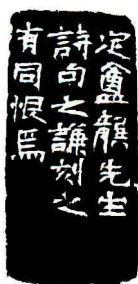 定盦龔先生
詩句之謙刻之
有同恨焉